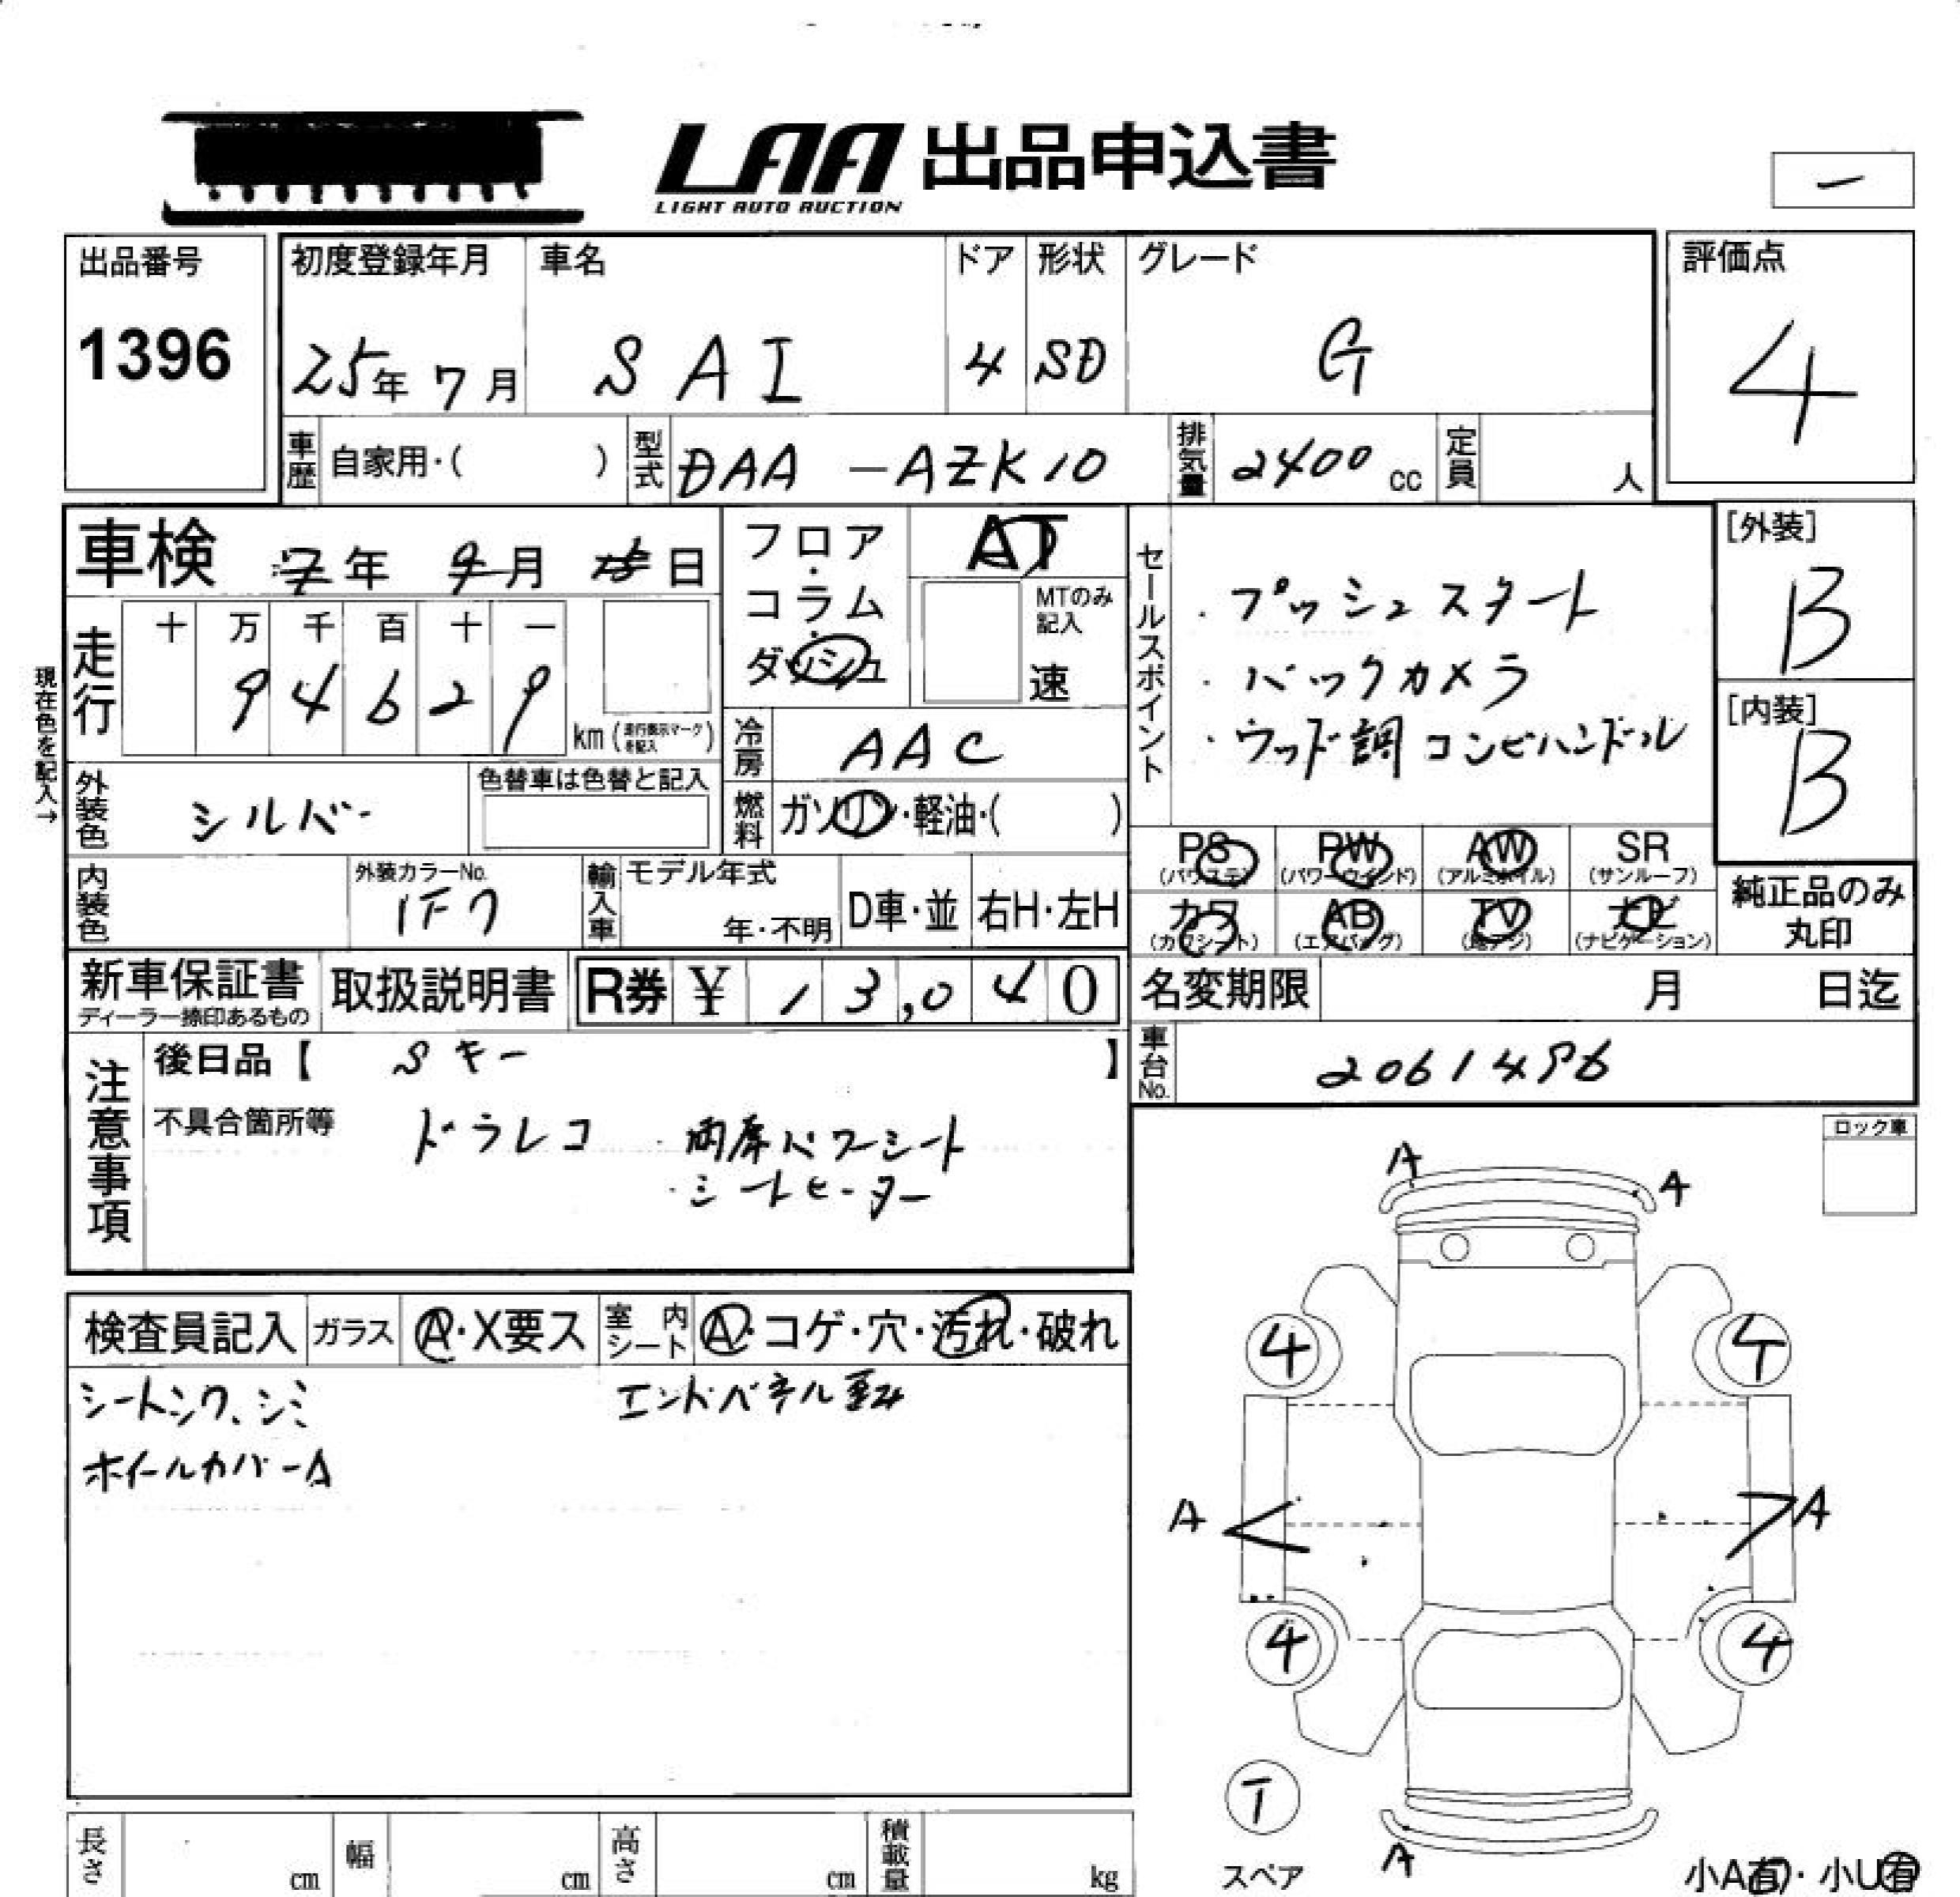 LAA 出品申込書
LIGHT AUTO AUCTION
一
出品番号
1396
初度登録年月
25年 7月
車名
SAI
ドア
4
形状
SD
グレード
G
評価点
4
車歴 自家用・( )
型式 DAA-AZK10
排気量 2400 cc
定員 人
車検 年 月 日
走行 十 万 千 百 十 一
9 4 6 2 9
km (走行表示マークを記入)
現在色を記入→
外装色 シルバー
色替車は色替と記入
内装色
外装カラーNo.
1F7
輸入車 モデル年式
年・不明
D車・並
右H・左H
フロア・コラム・ダッシュ
AT
MTのみ記入
速
冷房 AAC
燃料 ガソリン・軽油・( )
セールスポイント
・プッシュスタート
・バックカメラ
・ウッド調コンビハンドル
[外装]
B
[内装]
B
PS (パワステ)
PW (パワーウインド)
AW (アルミホイル)
SR (サンルーフ)
カワ (カワシート)
AB (エアバッグ)
TV (地デジ)
ナビ (ナビゲーション)
純正品のみ丸印
新車保証書
ディーラー捺印あるもの
取扱説明書
R券 ¥ 13,040
名変期限 月 日迄
車台No. 2061496
注意事項
後日品【 Sキー 】
不具合箇所等
ドラレコ
・両席パワーシート
・シートヒーター
ロック車
検査員記入
ガラス A・X要ス
室内シート A・コゲ・穴・汚れ・破れ
シートンク、シミ
エンドパネル歪み
ホイールカバーA
A
A
4
4
A
A
4
4
T
スペア
A
小A有・小U有
長さ cm
幅 cm
高さ cm
積載量 kg